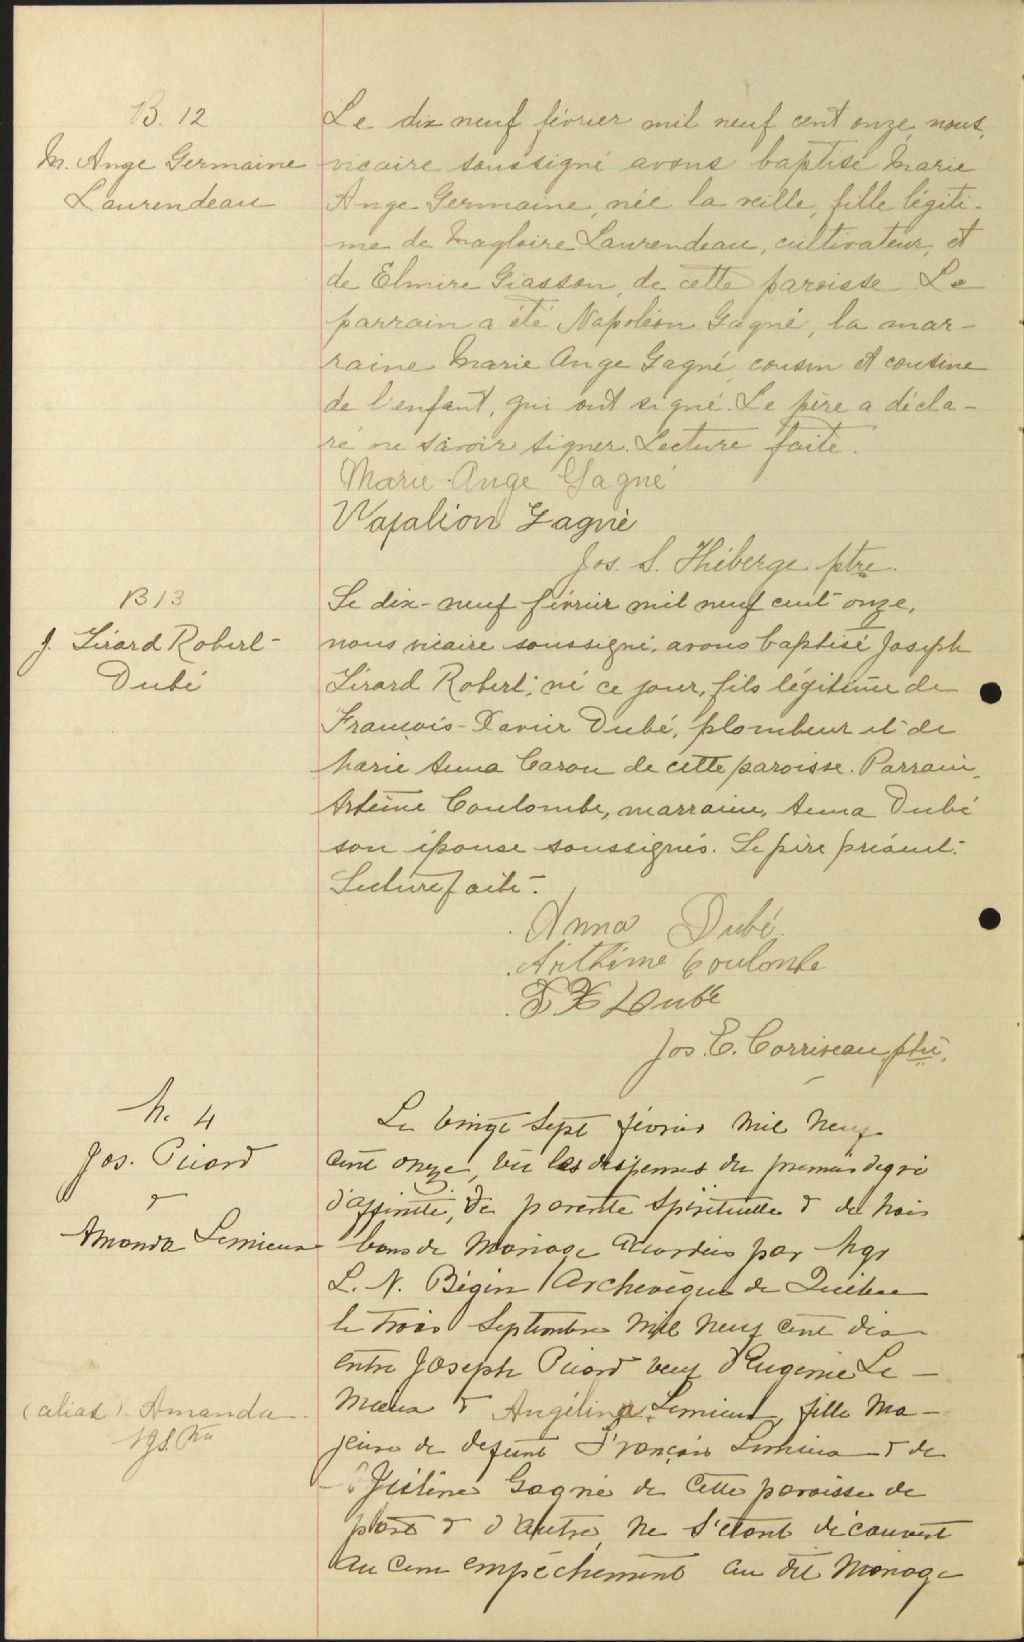 B. 12
M. Ange Germaine
Laurendeau
Le dix neuf février mil neuf cent onze, nous,
vicaire soussigné avons baptisé Marie
Ange Germaine, née la veille, fille légiti-
me de Magloire Laurendeau, cultivateur, et
de Elmire Giasson, de cette paroisse. Le
parrain a été Napoléon Gagné, la mar-
raine Marie Ange Gagné, cousin et cousine
de l'enfant, qui ont signé. Le père a décla-
ré ne savoir signer. Lecture faite.
Marie-Ange Gagné
Napalion Gagné
Jos. S. Théberge ptre.
B 13
J. Lirard Robert
Dubé
Le dix-neuf février mil neuf cent onze,
nous vicaire soussigné, avons baptisé Joseph
Lirard Robert, né ce jour, fils légitime de
François-Xavier Dubé, plombeur et de
Marie Anna Caron de cette paroisse. Parrain,
Artème Coulombe, marraine, Anna Dubé
son épouse soussignés. Le père présent.
Lecture faite.
Anna Dubé
Arthème Coulombe
F X Dubé
Jos. E. Corriveau, ptre.
M. 4
Jos. Picard
&
Amanda Lemieux
Le vingt sept février mil neuf
cent onze, vu les dispenses du premier degré
d'affinité, de parenté spirituelle & de trois
bans de mariage accordées par Mgr
L. N. Bégin Archevêque de Québec
le trois septembre mil neuf cent dix
entre Joseph Picard veuf d'Eugénie Le-
mieux & Angélina Lemieux, fille ma-
jeure de defunt François Lemieux & de
Gagné de cette paroisse de
part & d'autre, ne s'étant découvert
aucun empêchement au dit mariage
(alias) Amanda